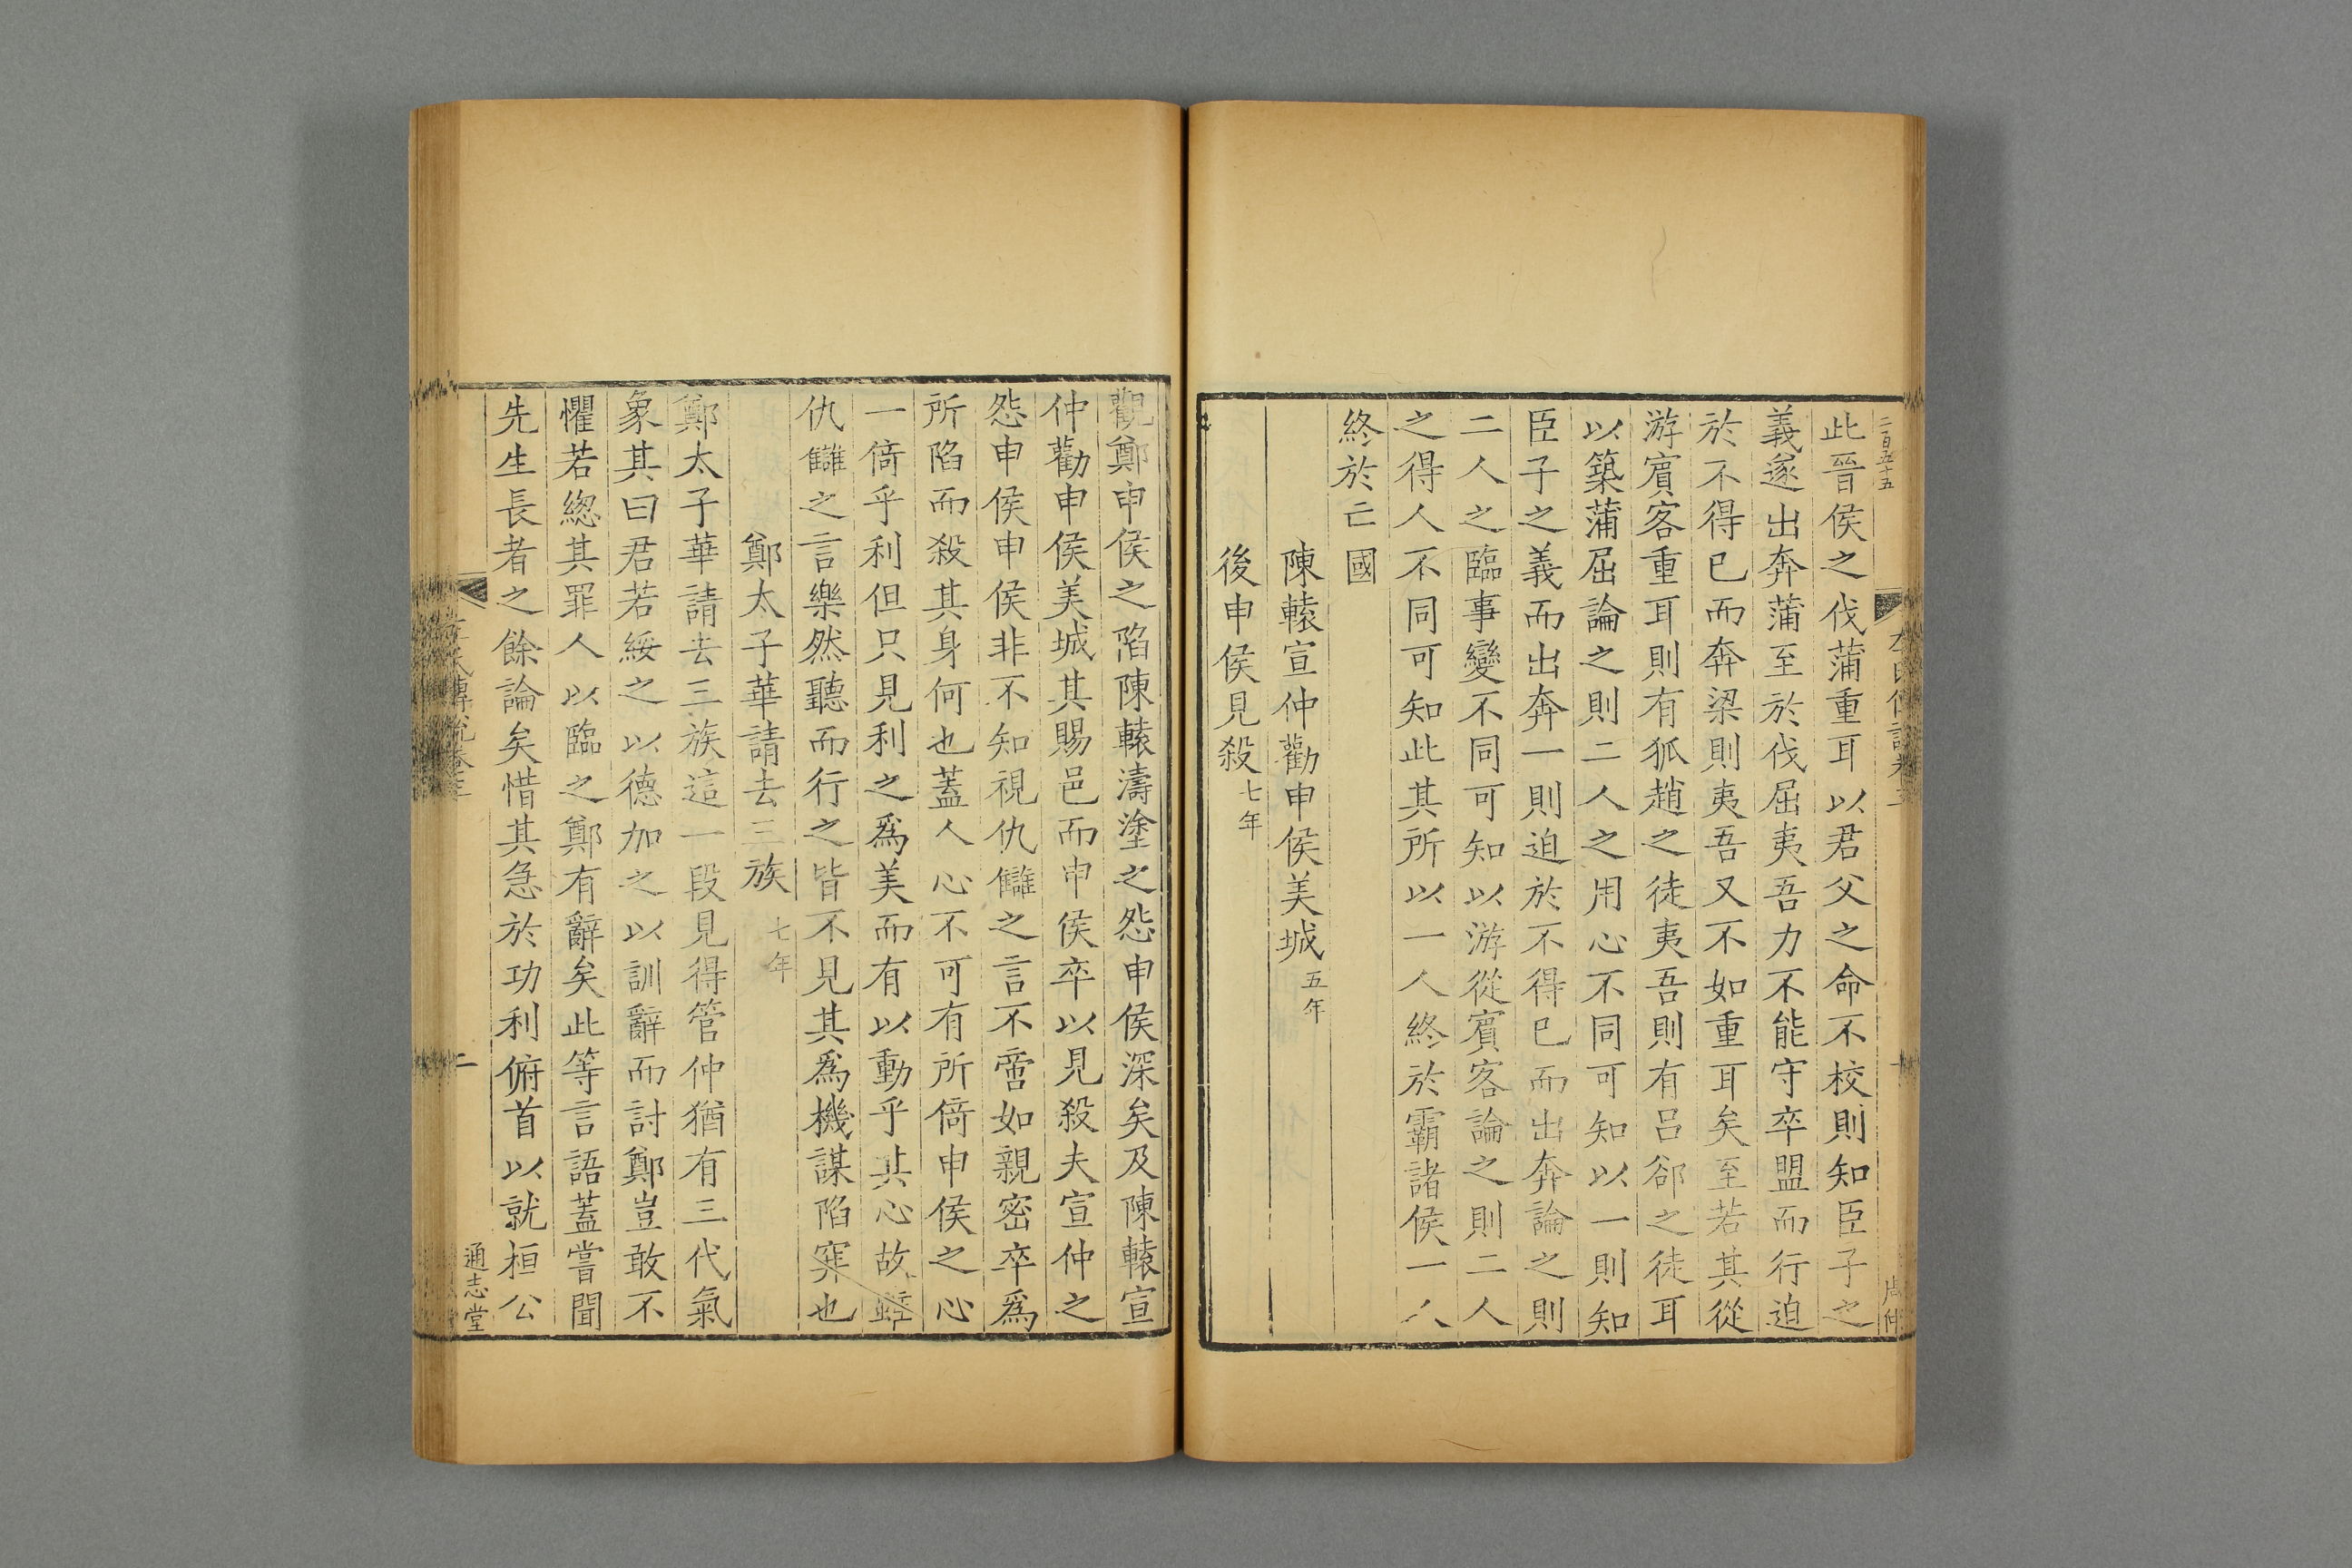 二百五十五
此晉侯之伐蒲重耳以君父之命不校則知臣子之
義遂出奔蒲至於伐屈夷吾力不能守卒盟而行迫
於不得已而奔梁則夷吾又不如重耳矣至若其從
游賓客重耳則有狐趙之徒夷吾則有呂郤之徒耳
以築蒲屈論之則二人之用心不同可知以一則知
臣子之義而出奔一則迫於不得已而出奔論之則
二人之臨事變不同可知以游從賓客論之則二人
之得人不同可知此其所以一人終於霸諸侯一人
終於亡國
陳轅宣仲勸申侯美城五年
後申侯見殺七年
觀鄭申侯之陷陳轅濤塗之怨申侯深矣及陳轅宣
仲勸申侯美城其賜邑而申侯卒以見殺夫宣仲之
怨申侯申侯非不知視仇讎之言不啻如親密卒爲
所陷而殺其身何也蓋人心不可有所倚申侯之心
一倚乎利但只見利之爲美而有以動乎其心故雖
仇讎之言樂然聽而行之皆不見其爲機謀陷穽也
鄭太子華請去三族七年
鄭太子華請去三族這一段見得管仲猶有三代氣
象其曰君若綏之以德加之以訓辭而討鄭豈敢不
懼若緫其罪人以臨之鄭有辭矣此等言語蓋嘗聞
先生長者之餘論矣惜其急於功利俯首以就桓公
氏傳說卷三
二
通志堂